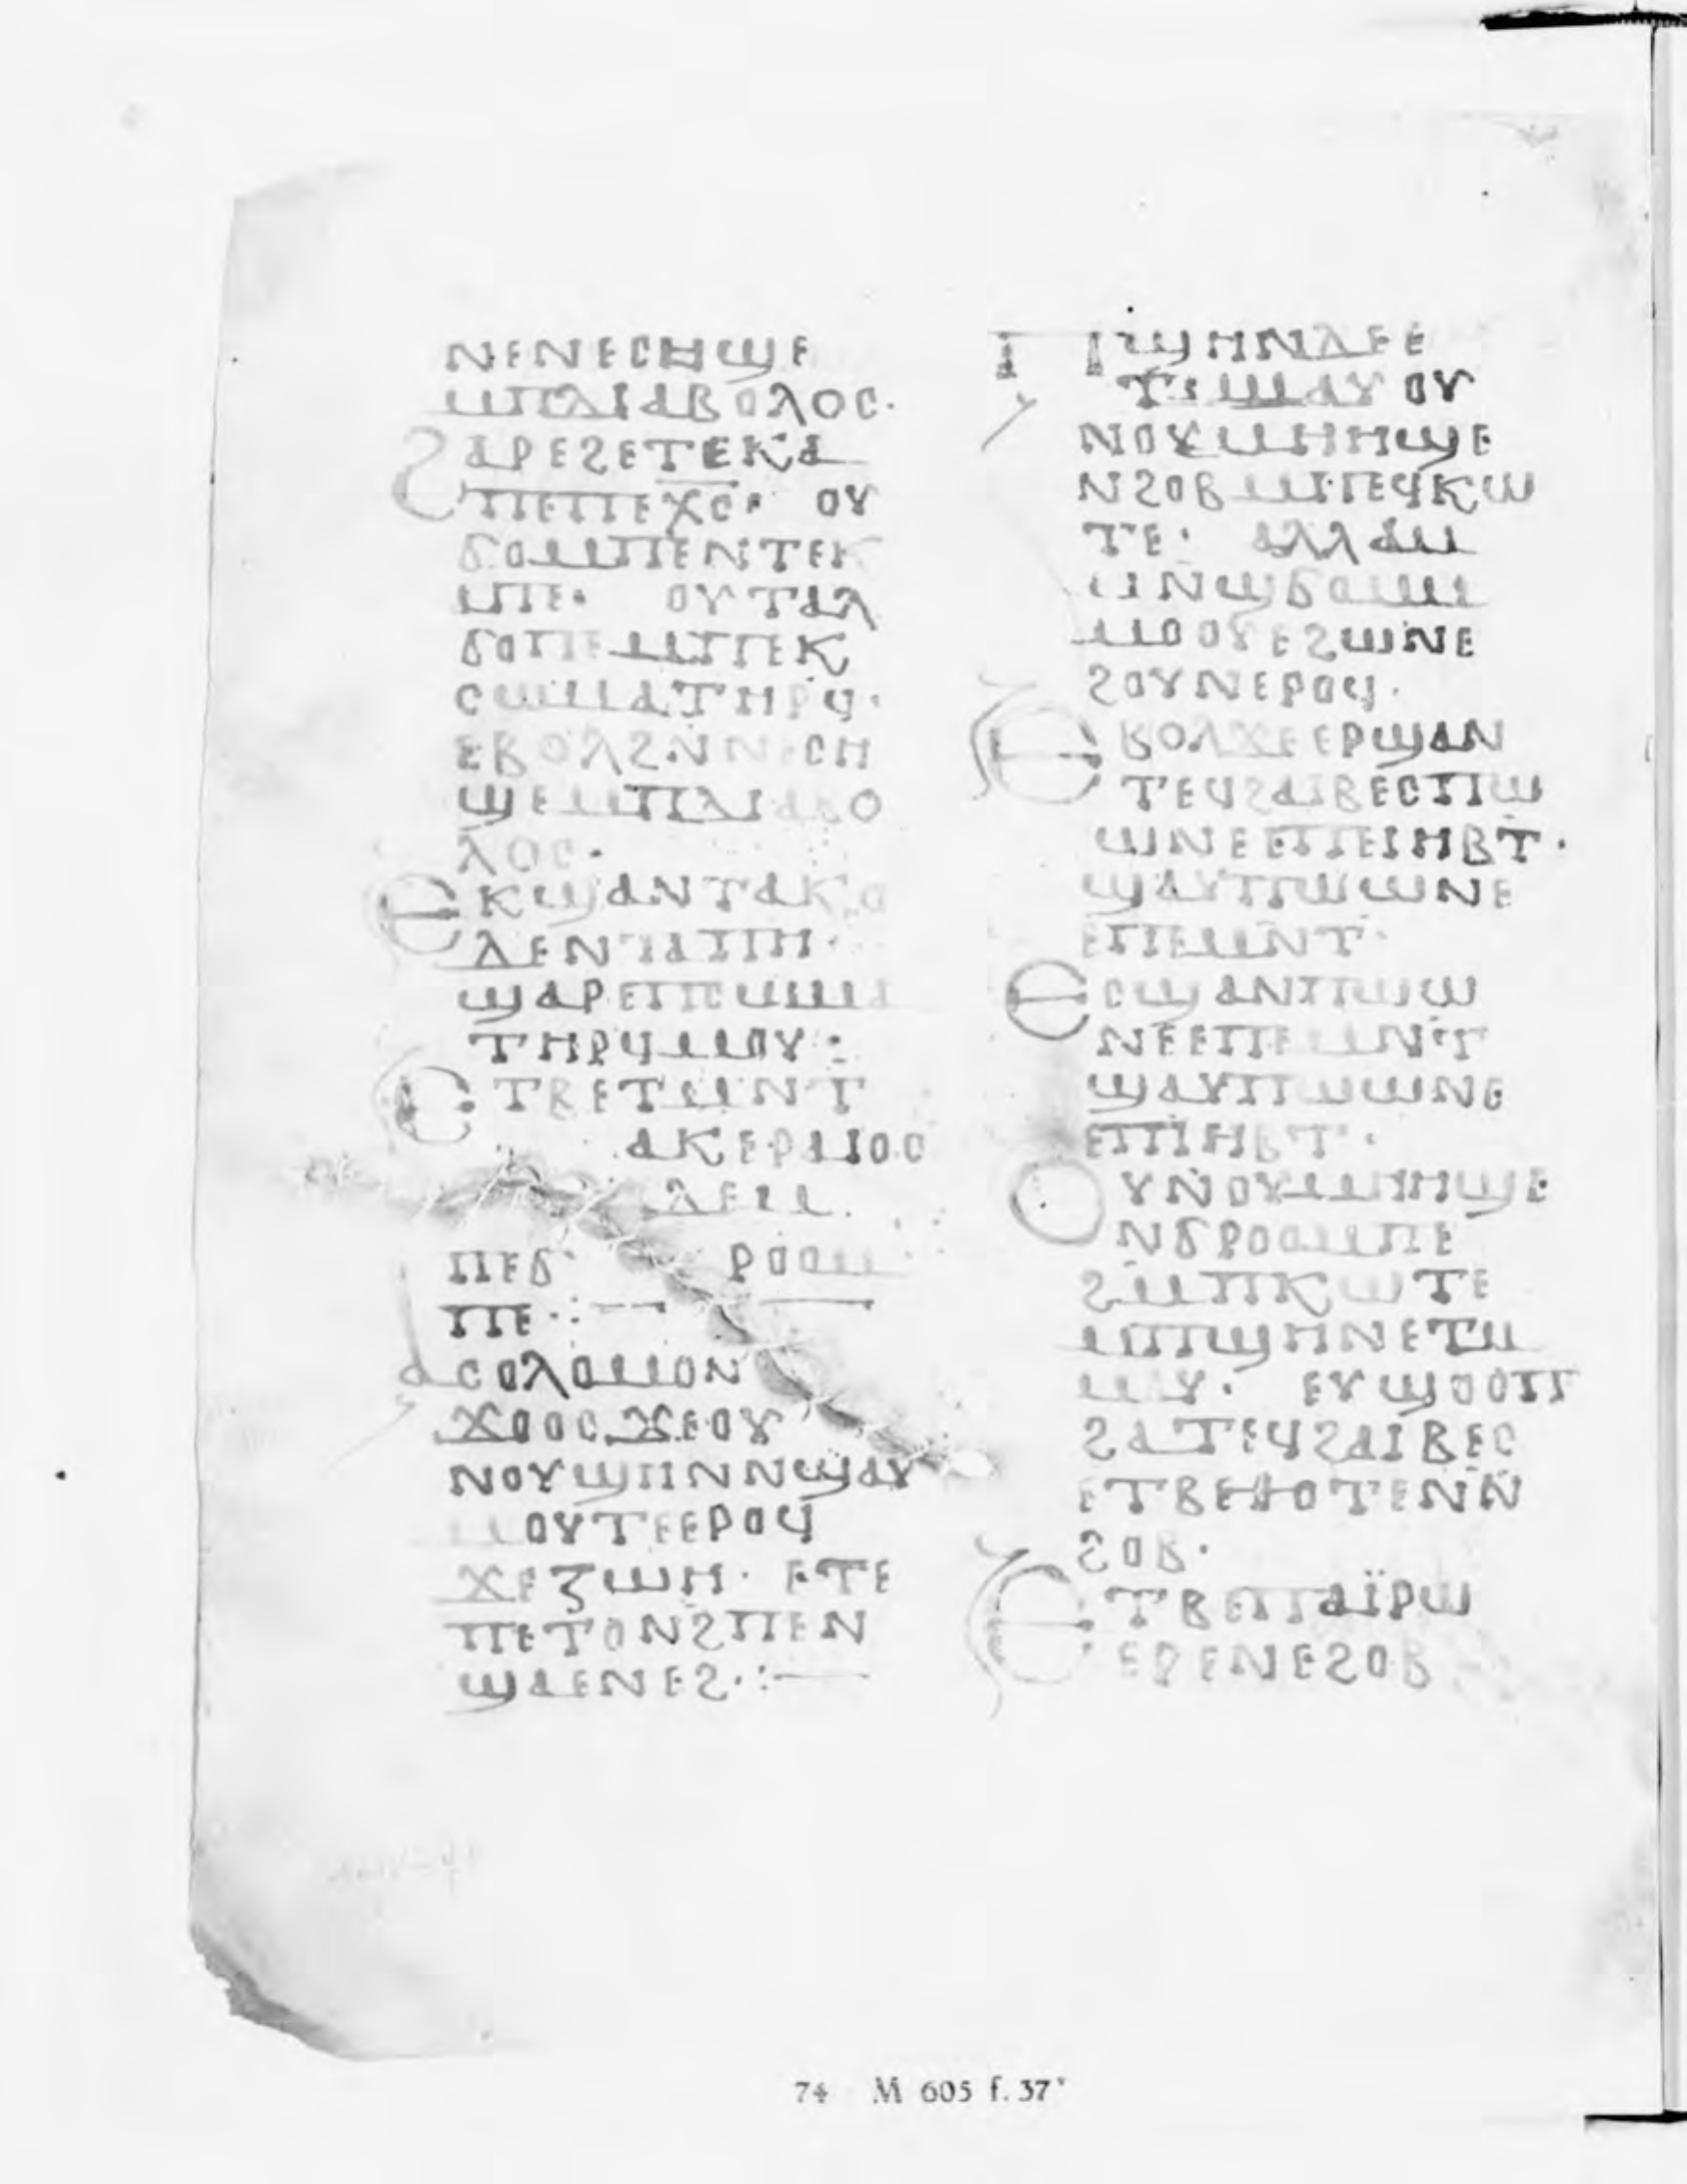 ⲛⲉⲛⲉⲥⲏϣⲉ
ⲙⲡⲇⲓⲁⲃⲟⲗⲟⲥ·
ϩⲁⲣⲉϩⲉⲧⲉⲕⲁ
ⲡⲉⲡⲉⲭ̅ⲥ̅· ⲟⲩ
ϭⲟⲙⲡⲉⲛⲧⲉⲕ
ⲙⲡⲉ· ⲟⲩⲧⲁⲗ
ϭⲟⲡⲉⲙⲡⲉⲕ
ⲥⲱⲙⲁⲧⲏⲣϥ·
ⲉⲃⲟⲗϩⲛⲛⲉⲥⲏ
ϣⲉⲙⲡⲇⲓⲁⲃⲟ
ⲗⲟⲥ·
ⲉⲕϣⲁⲛⲧⲁⲕⲟ
ⲇⲉⲛⲧⲁⲡⲏ·
ϣⲁⲣⲉⲡⲥⲱⲙⲁ
ⲧⲏⲣϥⲙⲟⲩ:
ⲉⲧⲃⲉⲧⲙⲛⲧ
ⲁⲕⲉⲣⲁⲓⲟⲥ
ⲇⲉⲙ
ⲡⲉϭ ⲣⲟⲟⲙ
ⲡⲉ·:
ⲁⲥⲟⲗⲟⲙⲟⲛ
ϫⲟⲟⲥϫⲉⲟⲩ
ⲛⲟⲩϣⲏⲛⲛϣⲁⲩ
ⲙⲟⲩⲧⲉⲉⲣⲟϥ
ϫⲉⲍⲱⲏ· ⲉⲧⲉ
ⲡⲉⲧⲟⲛϩⲡⲉⲛ
ϣⲁⲉⲛⲉϩ·:
ⲡϣⲏⲛⲇⲉⲉ
ⲧⲙⲙⲁⲩ ⲟⲩ
ⲛⲟⲩⲙⲏⲏϣⲉ
ⲛϩⲟⲃ ⲙⲡⲉϥⲕⲱ
ⲧⲉ· ⲁⲗⲗⲁⲙ
ⲙⲛϣϭⲟⲙⲙ
ⲙⲟⲟⲩⲉϩⲱⲛⲉ
ϩⲟⲩⲛⲉⲣⲟϥ·
ⲉⲃⲟⲗϫⲉⲉⲣϣⲁⲛ
ⲧⲉϥϩⲁⲓⲃⲉⲥⲡⲱ
ⲱⲛⲉⲉⲡⲉⲓⲏⲃⲧ·
ϣⲁⲩⲡⲱⲱⲛⲉ
ⲉⲡⲉⲙⲛⲧ·
ⲉⲥϣⲁⲛⲡⲱⲱ
ⲛⲉⲉⲡⲉⲙⲛⲧ
ϣⲁⲩⲡⲱⲱⲛⲉ
ⲉⲡⲓⲏⲃⲧ·
ⲟⲩⲛⲟⲩⲙⲏⲏϣⲉ
ⲛϭⲣⲟⲟⲙⲡⲉ
ϩⲙⲡⲕⲱⲧⲉ
ⲙⲡϣⲏⲛⲉⲧⲙ
ⲙⲁⲩ· ⲉⲩϣⲟⲟⲡ
ϩⲁⲧⲉϥϩⲁⲓⲃⲉⲥ
ⲉⲧⲃⲉⲑⲟⲧⲉⲛⲛ
ϩⲟⲃ·
ⲉⲧⲃⲉⲡⲁⲓ̈ⲣⲱ
ⲉⲣⲉⲛⲉϩⲟⲃ
74 M 605 f. 37ᵛ